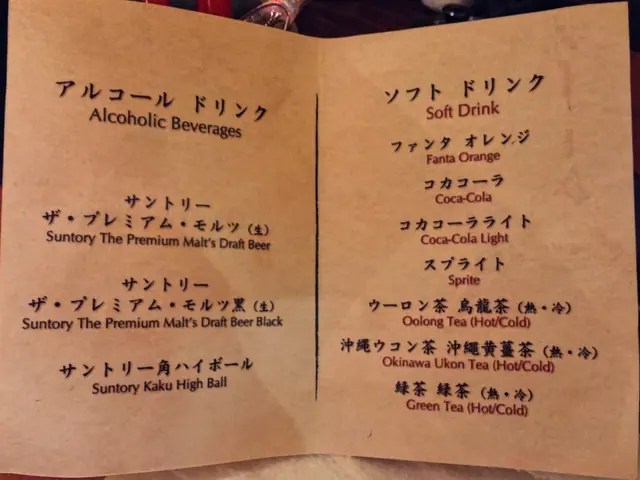 アルコール ドリンク
Alcoholic Beverages
サントリー
ザ・プレミアム・モルツ（生）
Suntory The Premium Malt's Draft Beer
サントリー
ザ・プレミアム・モルツ黒（生）
Suntory The Premium Malt's Draft Beer Black
サントリー角ハイボール
Suntory Kaku High Ball
ソフト ドリンク
Soft Drink
ファンタ オレンジ
Fanta Orange
コカコーラ
Coca-Cola
コカコーラライト
Coca-Cola Light
スプライト
Sprite
ウーロン茶 烏龍茶（熱・冷）
Oolong Tea (Hot/Cold)
沖縄ウコン茶 沖繩黄薑茶（熱・冷）
Okinawa Ukon Tea (Hot/Cold)
緑茶 緑茶（熱・冷）
Green Tea (Hot/Cold)